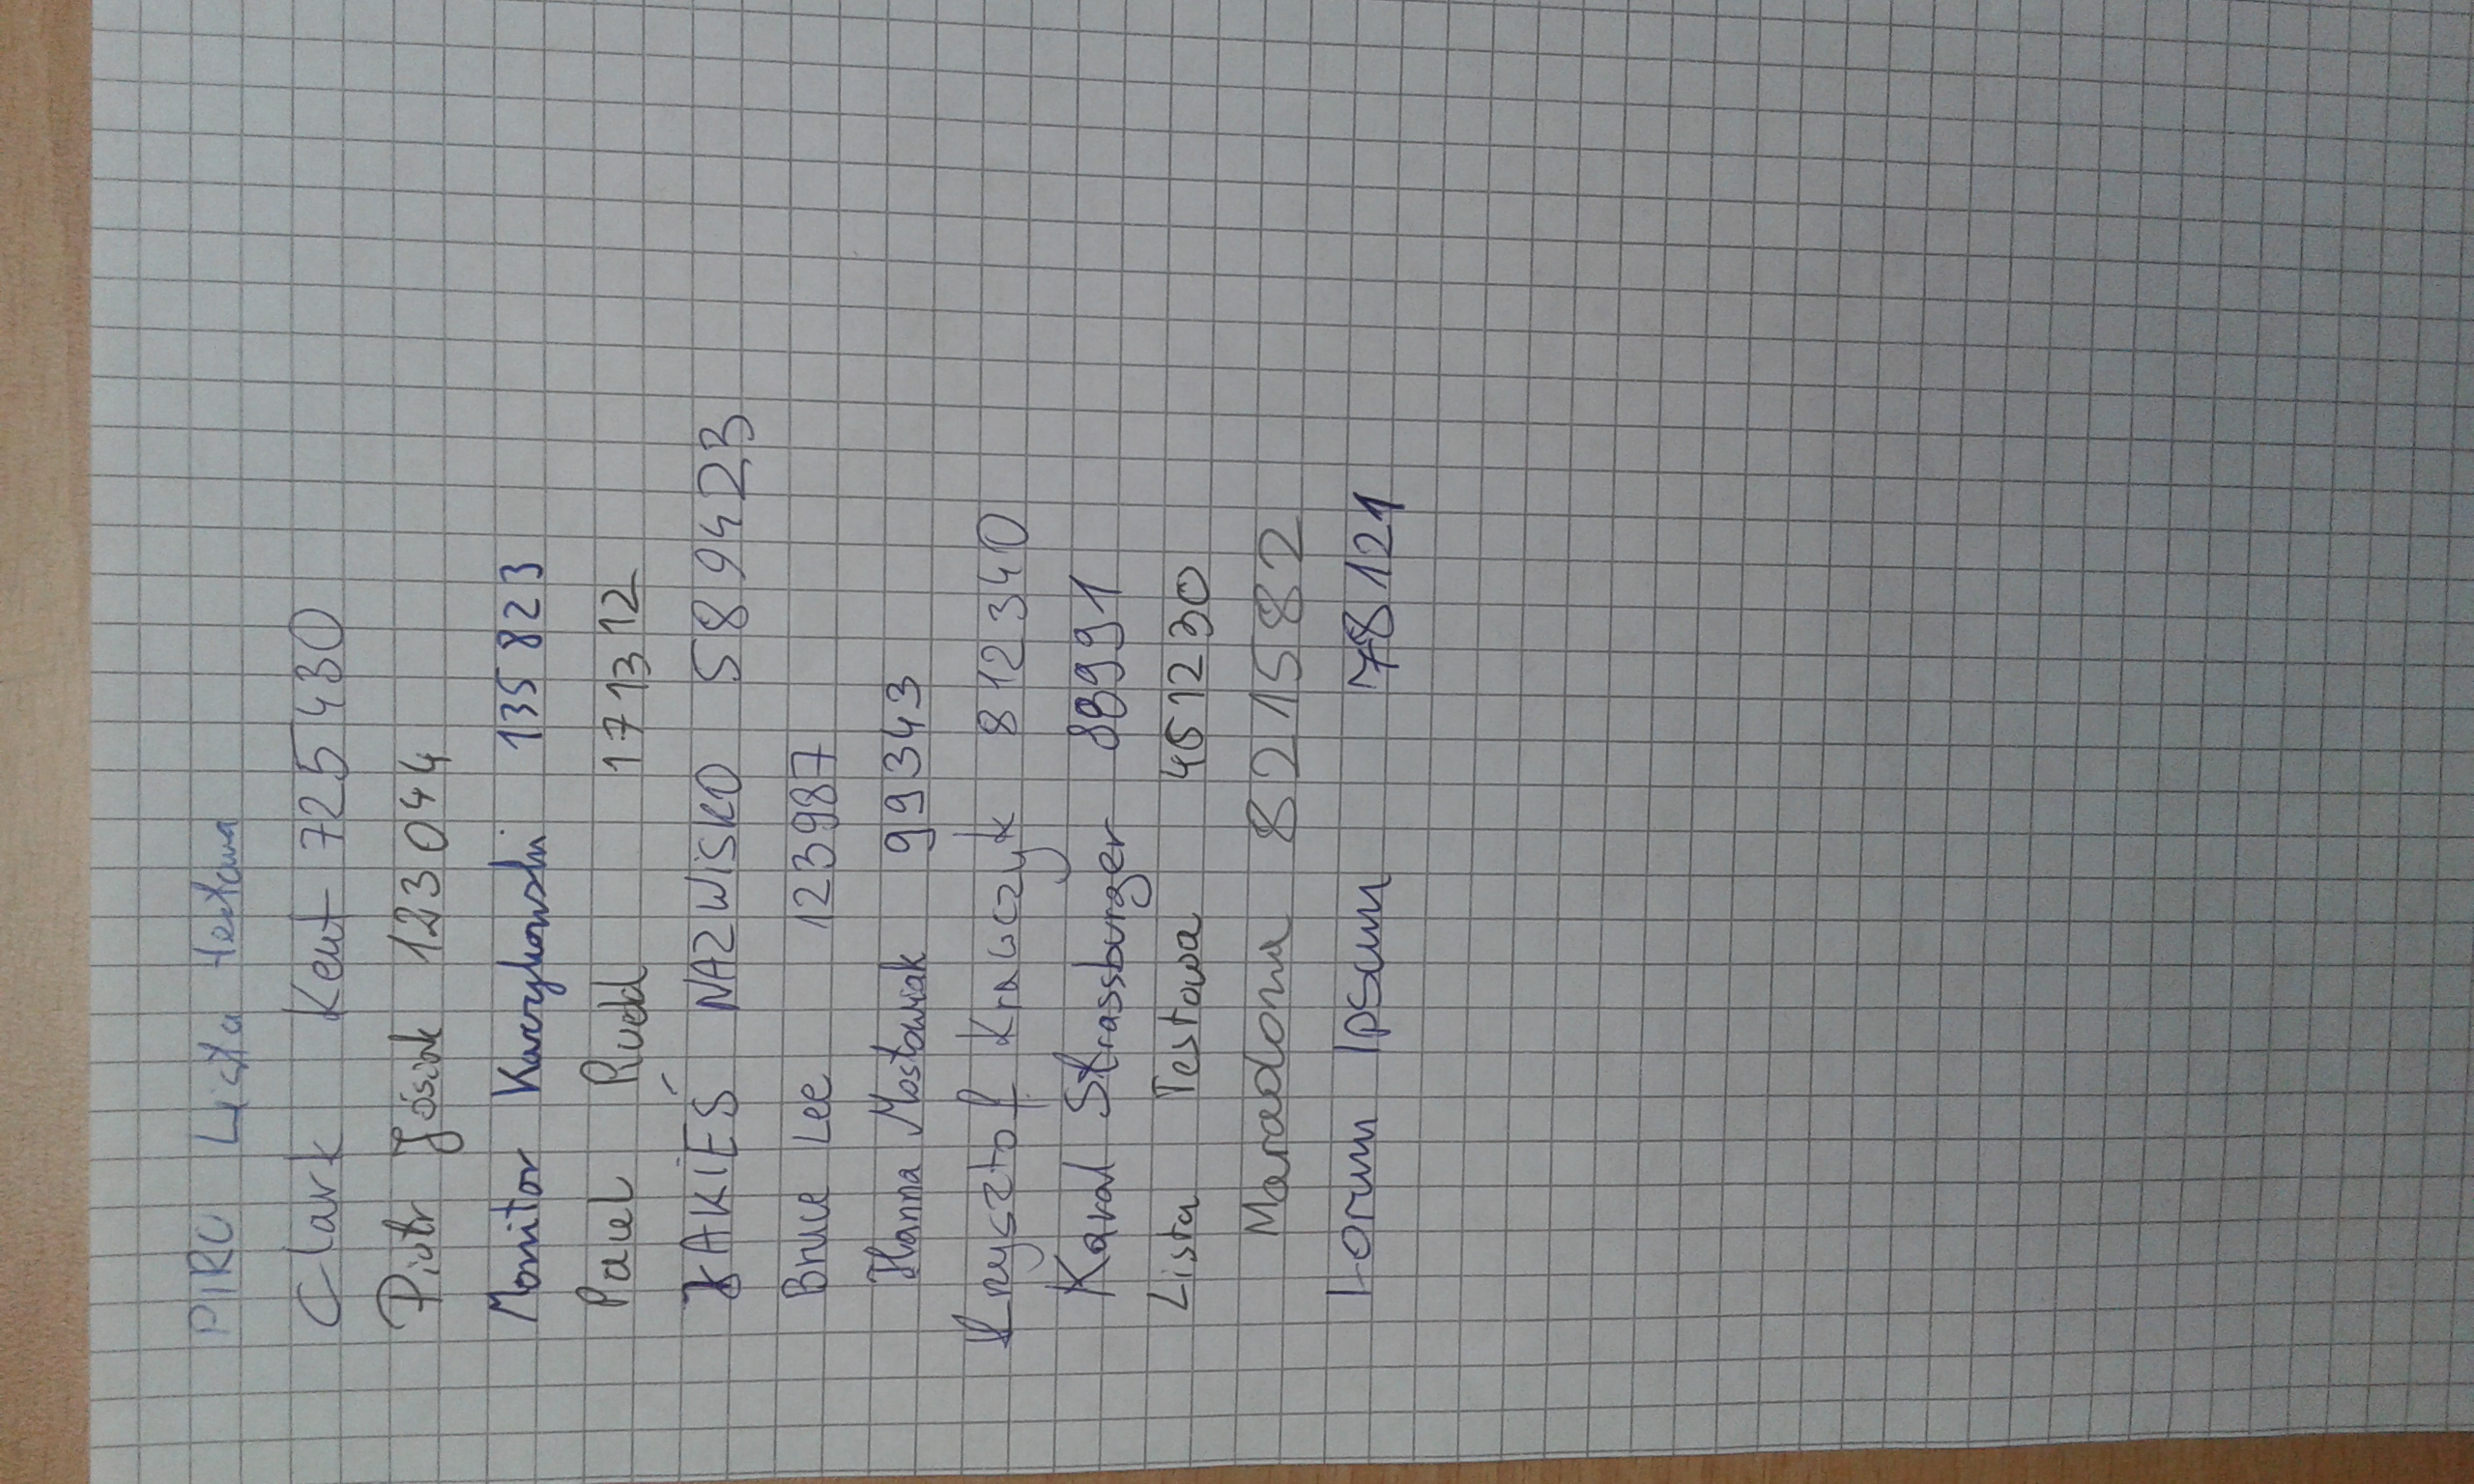 PIRO Lista testowa
Clark Kent 725430
Piotr Jósiak 123044
Monitor Kaczykowski 135823
Paul Rudd 171312
JAKIEŚ NAZWISKO 589423
Bruce Lee 123987
Hanna Mostowiak 99343
Krzysztof Krawczyk 812340
Karol Strassburger 89991
Lista Testowa 451230
Maradona 821582
Lorum Ipsum 78121